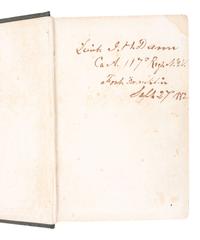 Lieut J. H. Dunn
Co A. 117th Regt N.Y.V.
Fort Franklin
Sept 27 1862